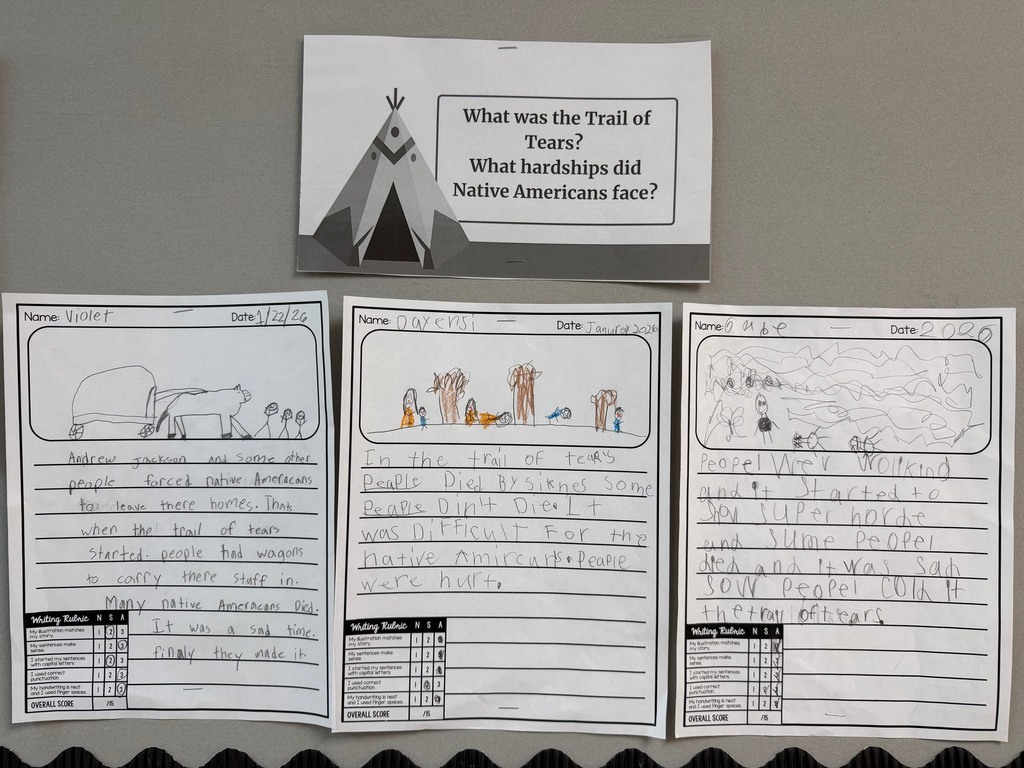 What was the Trail of
Tears?
What hardships did
Native Americans face?
Name: Violet
Date: 1/22/26
Andrew Jackson and some other
people forced native Ameracans
to leave there homes. Thats
when the trail of tears
started. people had wagons
to carry there stuff in.
Many native Ameracans Died.
It was a sad time.
finaly they made it.
Writing Rubric N S A
My illustration matches
my story. 1 2 3
My sentences make
sense. 1 2 3
I started my sentences
with capital letters. 1 2 3
I used correct
punctuation. 1 2 3
My handwriting is neat
and I used finger spaces. 1 2 3
OVERALL SCORE /15
Name: Dayensi
Date: January 2026
In the trail of tears
PeaPle Died By Siknes Some
PeaPle Din't Die. It
was DifficulT For the
native Amircans. People
were hurt.
Writing Rubric N S A
My illustration matches
my story. 1 2
My sentences make
sense. 1 2
I started my sentences
with capital letters. 1 2
I used correct
punctuation. 1 3
My handwriting is neat
and I used finger spaces. 1 2
OVERALL SCORE /15
Name:
Date: 2026
PeoPel Wer Wolking
and it Started to
SNOW SUPER horde
and SUme PeoPel
died and it was Sad
SOW PeoPel COld it
the tray of tears
Writing Rubric N S A
My illustration matches
my story. 1 2
My sentences make
sense. 1 2
I started my sentences
with capital letters. 1 2
I used correct
punctuation. 1
My handwriting is neat
and I used finger spaces. 1 2
OVERALL SCORE /15